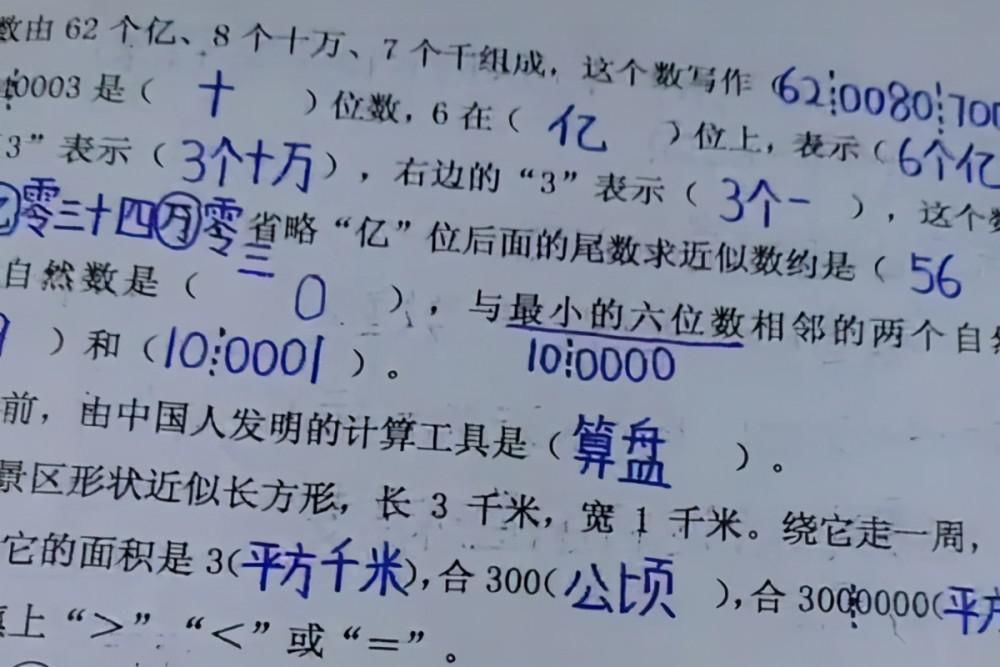 数由 62 个亿、8 个十万、7 个千组成，这个数写作（62┊0080┊700
0003 是（ 十 ）位数，6 在（ 亿 ）位上，表示（6个亿
3”表示（3个十万），右边的“3”表示（ 3个一 ），这个数
亿零三十四万零三 省略“亿”位后面的尾数求近似数约是（ 56
自然数是（ 0 ），与最小的六位数相邻的两个自然
）和（10┊0001 ）。 10┊0000
前，由中国人发明的计算工具是（算盘 ）。
景区形状近似长方形，长 3 千米，宽 1 千米。绕它走一周，
它的面积是 3(平方千米)，合 300(公顷 )，合 300┊0000(平方
填上“＞”“＜”或“＝”。